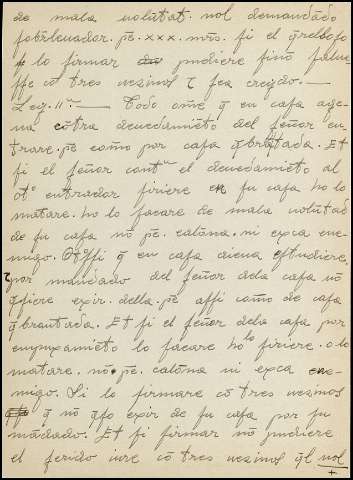 de mala uolũtat. nol demandãdo
sobrleuador. pē. xxx. mr̃s. si el q̃relloso
lo firmar pudiere sinõ salue-
sse cõ tres uezinos ⁊ sea creydo. —
Ley. IIa — Todo ome q̃ en casa age-
na cõtra deuedamiẽto del señor en-
trare. pē como por casa q̃brãtada. Et
si el señor cont̃ el deuedamiẽto al
otº entrador firiere en su casa ho lo
matare. ho lo sacare de mala uolũtad
de su casa nõ pē. calõna. ni exca ene-
migo. Assi q̃ en casa aiena estudiere,
⁊ por mandado del señor dela casa nõ
q̃siere exir. della. pē assi como de casa
q̃brantada. Et si el señor dela casa por
empuxamiẽto lo sacare ho lo firiere. o lo
matare. nõ. pē. calõna ni exca ene-
migo. Si lo firmare cõ tres uezinos
q̃ nõ q̃so exir de su casa por su
mãdado. Et si firmar nõ pudiere
el ferido iure cõ tres uezinos q̃l nol
+